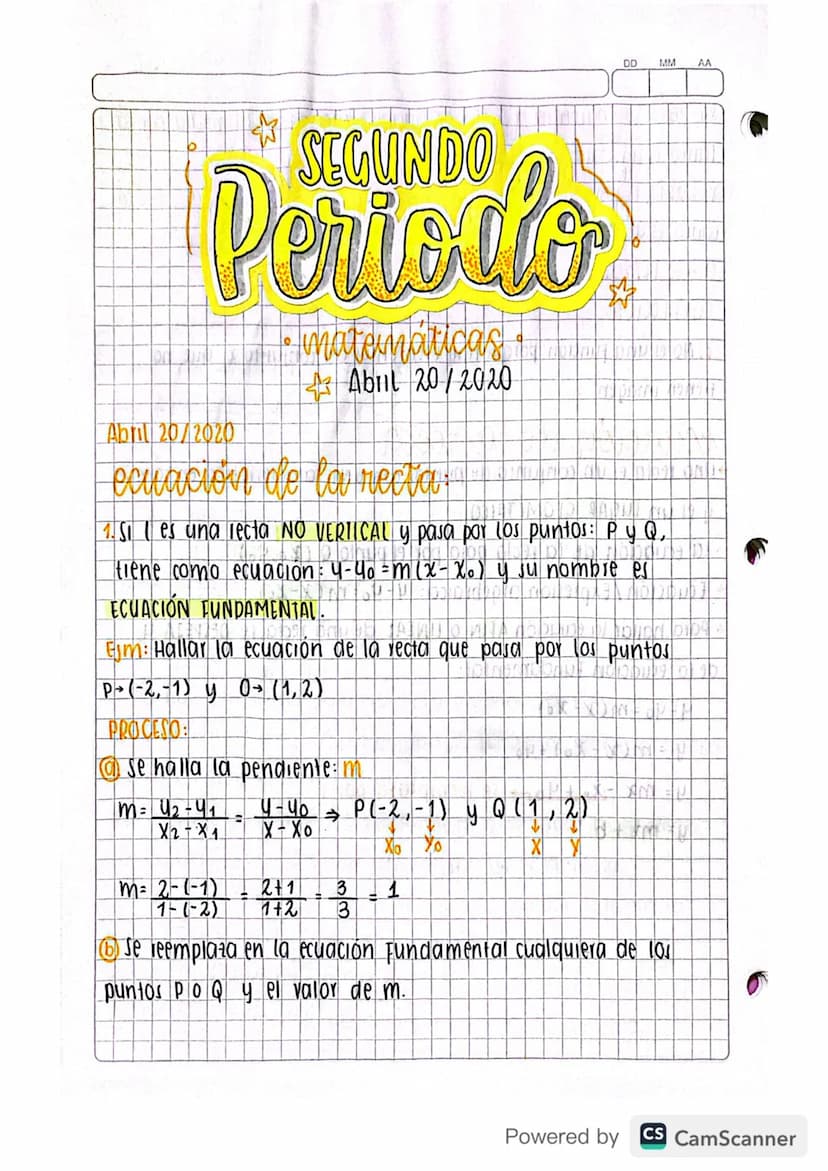 DD MM AA
SEGUNDO
Periodo
• matemáticas •
Abril 20/2020
Abril 20/2020
ecuación de la recta:
1. Si l es una recta NO VERTICAL y pasa por los puntos: P y Q,
tiene como ecuación: y-y₀=m(x-x₀) y su nombre es
ECUACIÓN FUNDAMENTAL.
Ejm: Hallar la ecuación de la recta que pasa por los puntos
P→(-2,-1) y Q→(1,2)
PROCESO:
ⓐ se halla la pendiente: m
m= y₂-y₁/x₂-x₁ = y-y₀/x-x₀ ⇒ P(-2,-1) y Q(1,2)
↓ ↓ ↓ ↓
x₀ y₀ x y
m= 2-(-1)/1-(-2) = 2+1/1+2 = 3/3 = 1
ⓑ Se reemplaza en la ecuación Fundamental cualquiera de los
puntos P o Q y el valor de m.
Powered by CS CamScanner